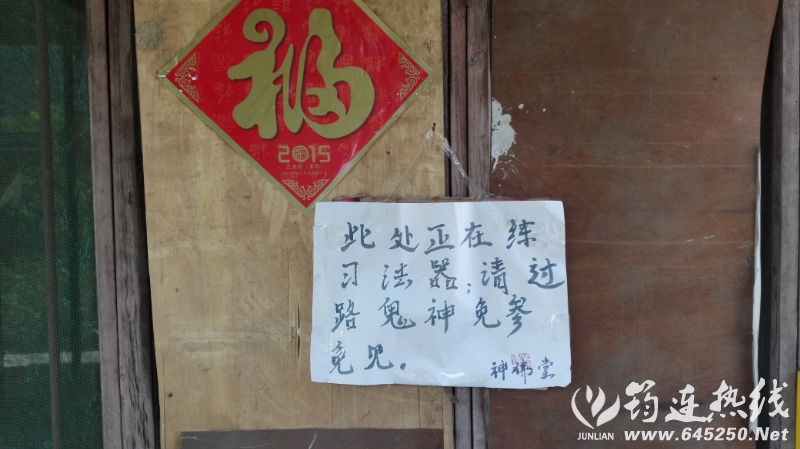 福
2015
此处正在练
习法器;请过
路鬼神免参
竞见。
神佛堂
筠连热线
JUNLIAN www.645250.Net